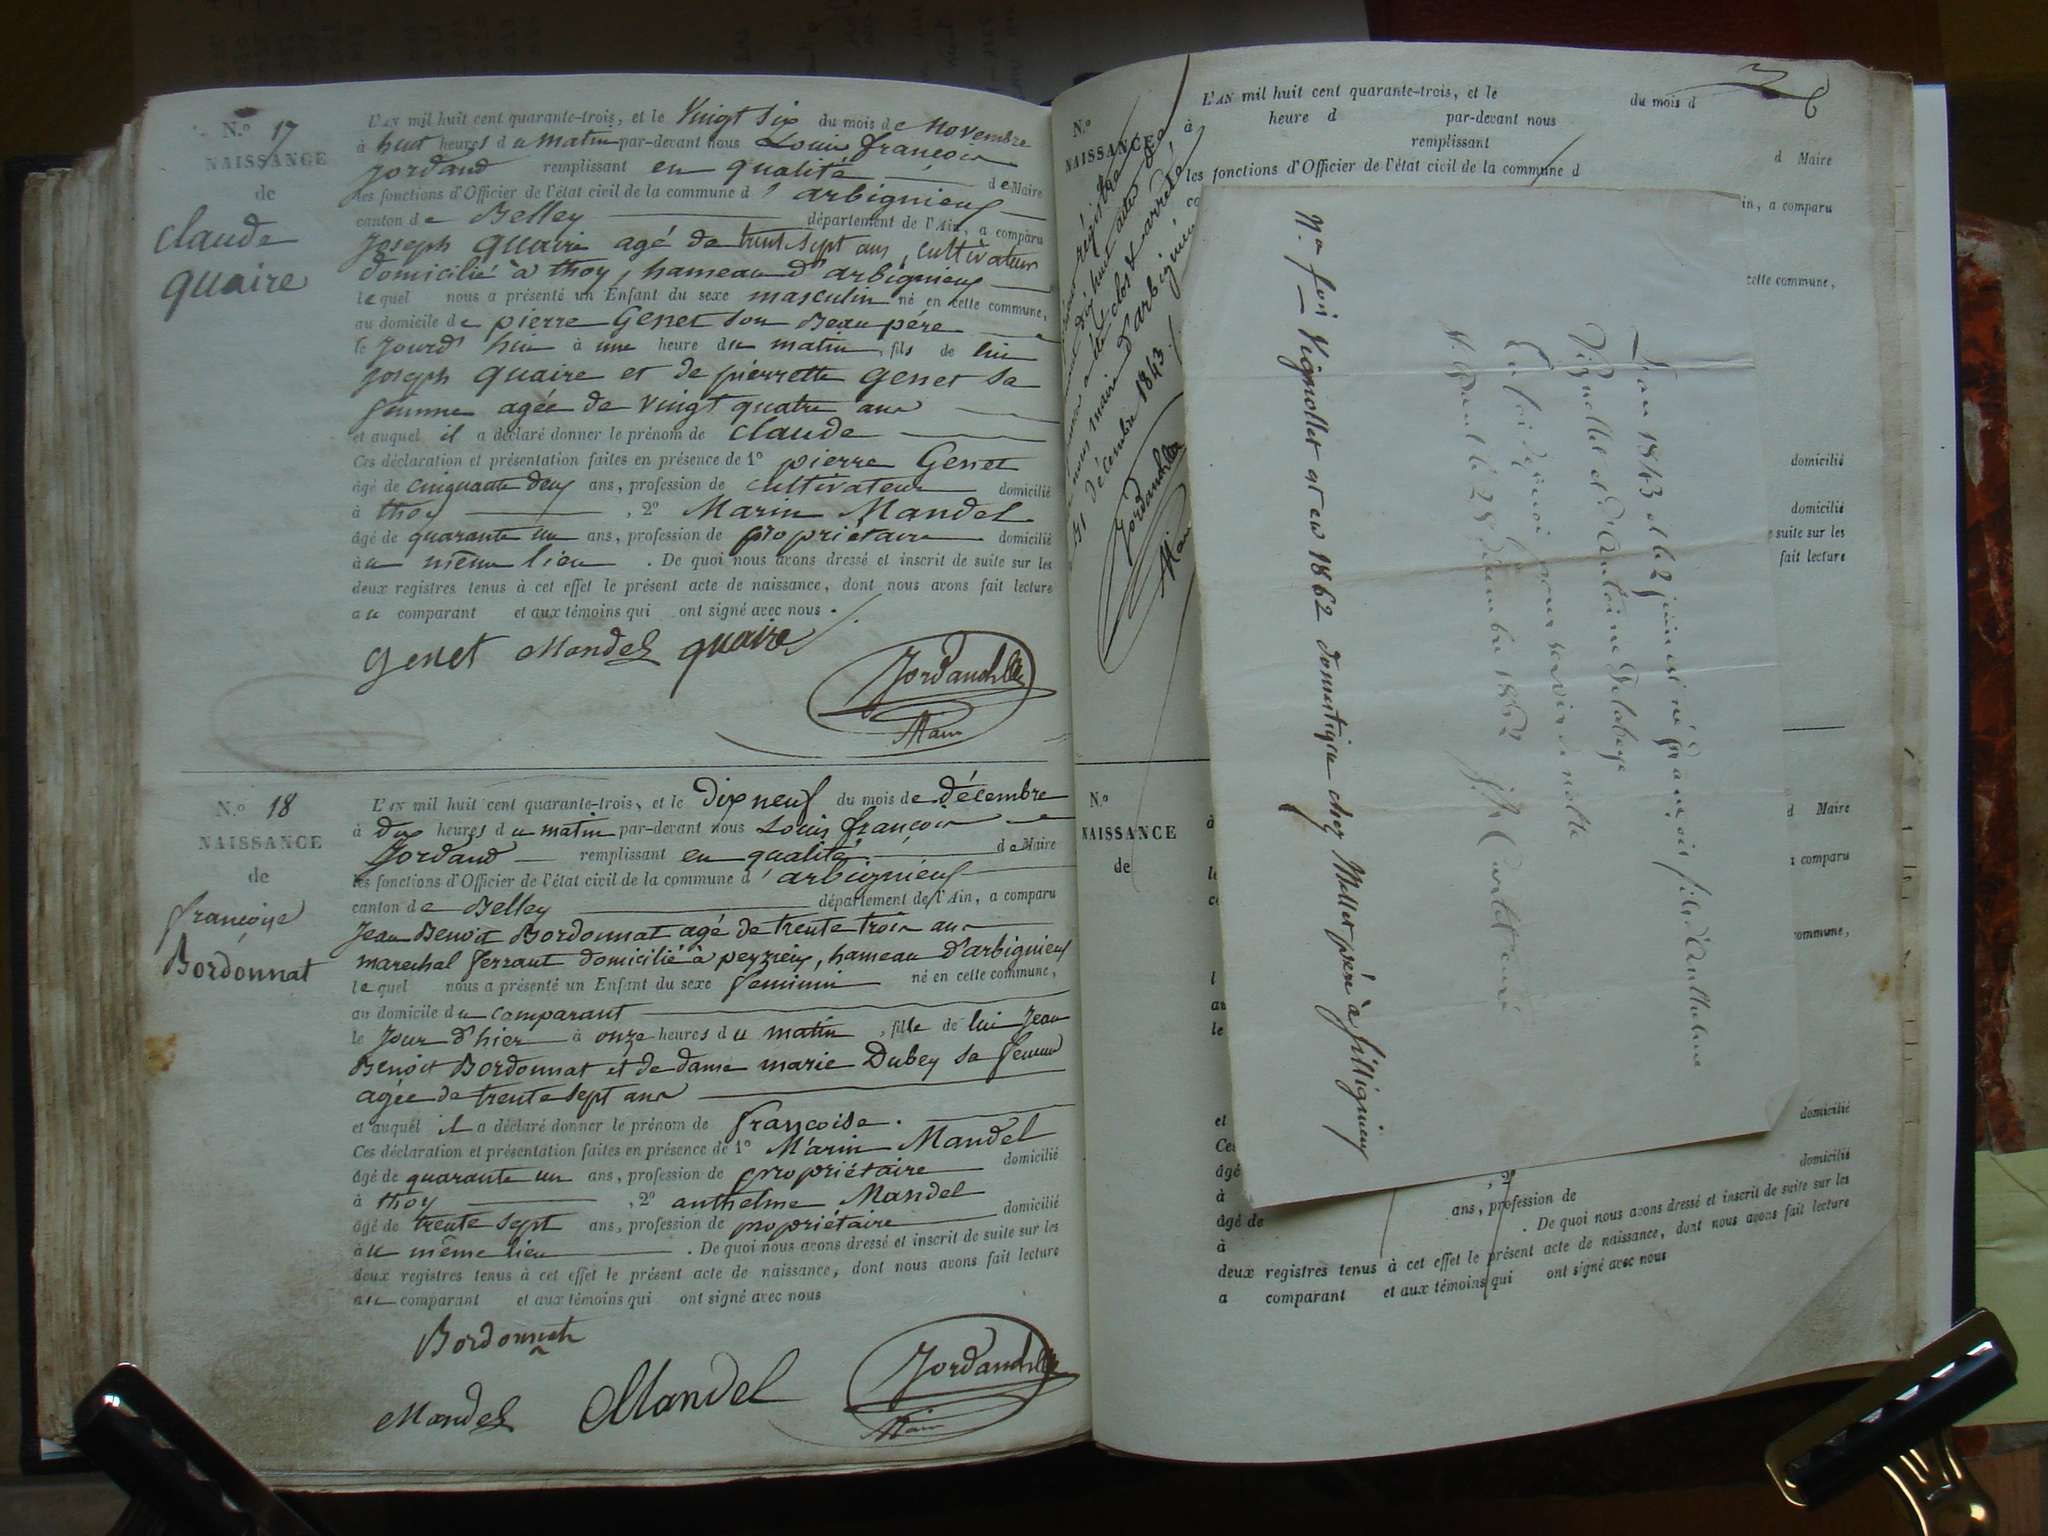 N.o 17
NAISSANCE
de
Claude
quaire
L'AN mil huit cent quarante-trois, et le vingt six du mois de novembre
à huit heures du matin par-devant nous Louis françois
Jordand remplissant en qualité de Maire
les fonctions d'Officier de l'état civil de la commune d'arbignieux
canton de Belley département de l'Ain, a comparu
Joseph quaire agé de trente sept ans, cultivateur
domicilié à thoy, hameau d'arbignieux
lequel nous a présenté un Enfant du sexe masculin né en cette commune,
au domicile de pierre Genet son Beau père
le Jourd'hui à une heure du matin, fils de lui
Joseph quaire et de pierrette genet sa
femme agée de vingt quatre ans
et auquel il a déclaré donner le prénom de Claude
Ces déclaration et présentation faites en présence de 1o pierre Genet
âgé de cinquante deux ans, profession de cultivateur domicilié
à thoy, 2o Marin Mandel
âgé de quarante un ans, profession de propriétaire domicilié
au même lieu. De quoi nous avons dressé et inscrit de suite sur les
deux registres tenus à cet effet le présent acte de naissance, dont nous avons fait lecture
au comparant et aux témoins qui ont signé avec nous.
genet Mandel quaire
Maire
N.o 18
NAISSANCE
de
françoise
Bordonnat
L'AN mil huit cent quarante-trois, et le dix neuf du mois de décembre
à dix heures du matin par-devant nous Louis françois
Jordand remplissant en qualité de Maire
les fonctions d'Officier de l'état civil de la commune d'arbignieux
canton de Belley département de l'Ain, a comparu
Jean Benoit Bordonnat agé de trente trois ans
marechal ferrant domicilié à peyzieux, hameau d'arbignieux
lequel nous a présenté un Enfant du sexe feminin né en cette commune,
au domicile du comparant
le Jour d'hier à onze heures du matin, fille de lui Jean
Benoit Bordonnat et de dame marie Dubey sa femme
agée de trente sept ans
et auquel il a déclaré donner le prénom de françoise.
Ces déclaration et présentation faites en présence de 1o Marin Mandel
âgé de quarante un ans, profession de propriétaire domicilié
à thoy, 2o anthelme Mandel
âgé de trente sept ans, profession de propriétaire domicilié
au même lieu. De quoi nous avons dressé et inscrit de suite sur les
deux registres tenus à cet effet le présent acte de naissance, dont nous avons fait lecture
au comparant et aux témoins qui ont signé avec nous
Bordonnat
Mandel Mandel
Maire
N.o
NAISSANCE
L'AN mil huit cent quarante-trois, et le du mois d
à heure d par-devant nous
remplissant d Maire
les fonctions d'Officier de l'état civil de la commune d
in, a comparu
cette commune,
domicilié
domicilié
suite sur les
fait lecture
registre
dix huit actes
clos & arrêté
maire d'arbignieux
décembre 1843
Maire
M.e foi Vignollet est en 1862 domestique chez Mellet père à filligneux
L'an 1843 et le 2 juin est né françois fils d'Anthelme
Vignollet et d'Antoine Delabaye
En foi de quoi
le 28 décembre 1862
curé
N.o
NAISSANCE
de
d Maire
comparu
commune,
domicilié
domicilié
et
âgé
à , 2o
âgé de ans, profession de
à . De quoi nous avons dressé et inscrit de suite sur les
deux registres tenus à cet effet le présent acte de naissance, dont nous avons fait lecture
a comparant et aux témoins qui ont signé avec nous